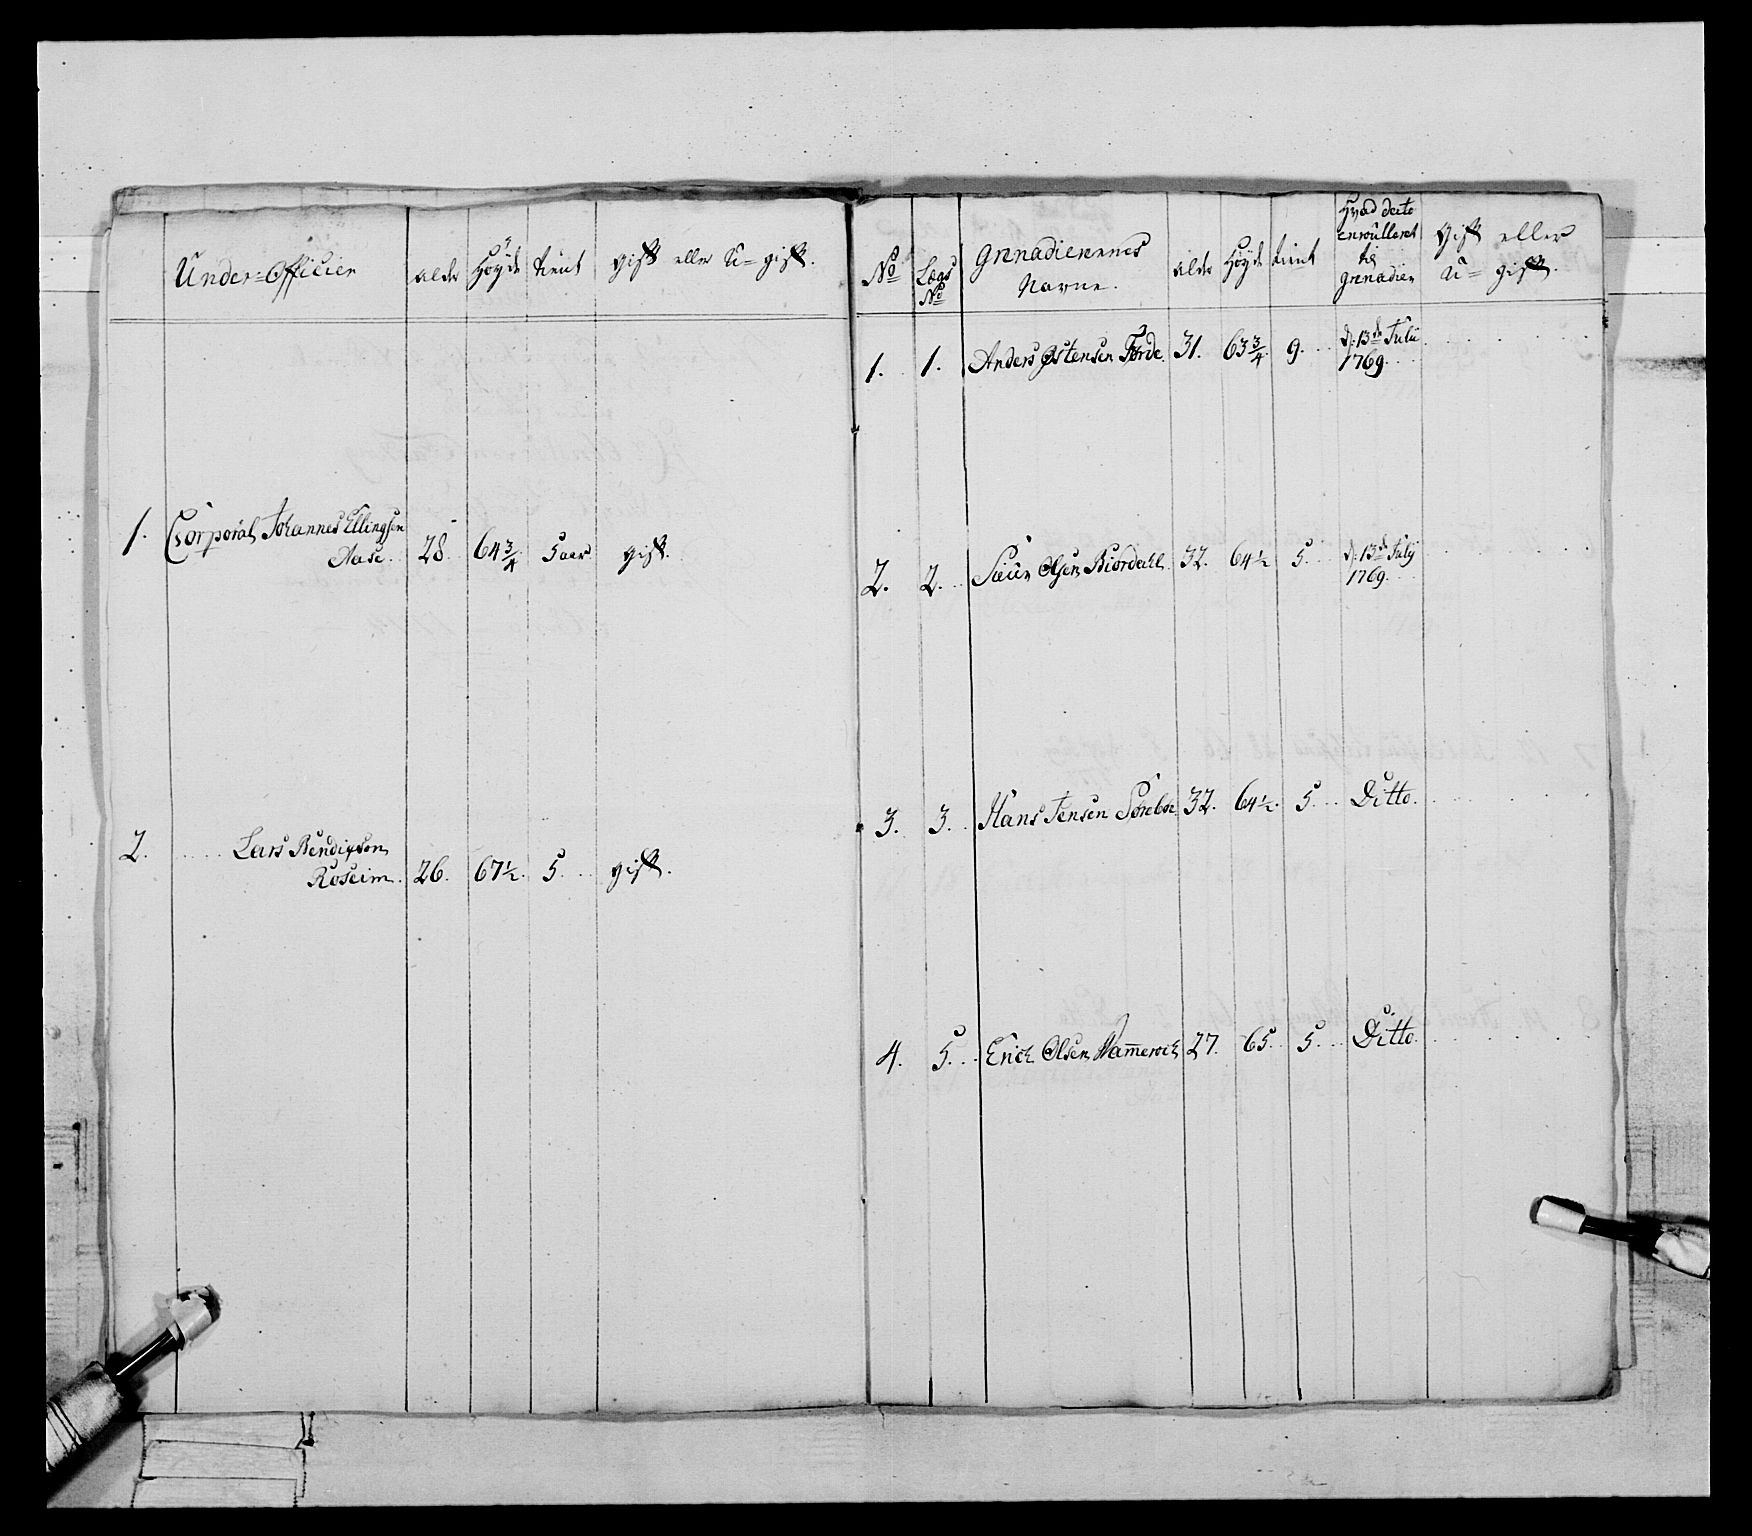 Under=Officier alder Høyde tient gift eller U= gift.
1. Corporal Johannes Ellingsen
Aase. 28. 64 3/4 5 aar gift.
2. Lars Bendigsen
Roseim. 26. 67 1/2. 5. gift.
No Lægs No grenadierernes Navne. alder Høyde tient Hvad dato enroulleret til grenadier Gift eller U= gift.
1. 1. Anders Østensen Førde 31. 63 3/4 9. d: 13de Julii
1769.
2. 2. Siur Olsen Biørdahl. 32. 64 1/2 5. d: 13de Julij
1769.
3. 3. Hans Jensen 32. 64 1/2. 5. Ditto.
4. 5. Erich Olsen 27. 65. 5. Ditto.